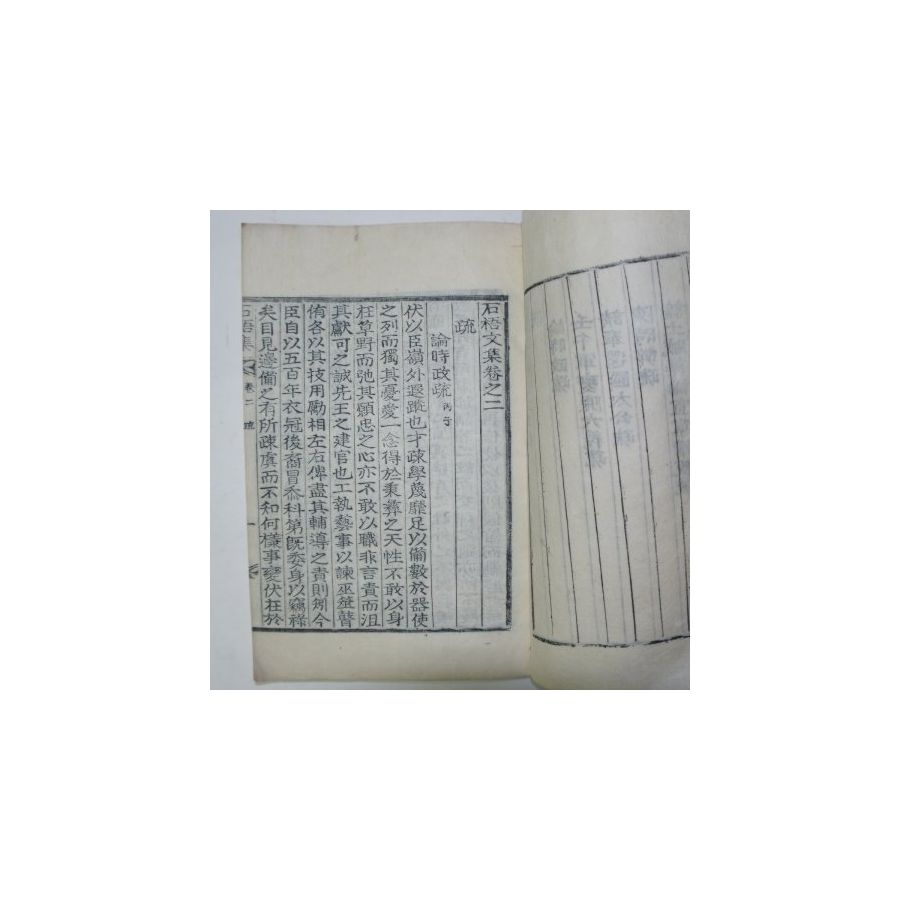 石梧文集卷之二
疏
論時政疏 丙子
伏以臣嶺外遐蹤也才疎學蔑靡足以備數於器使
之列而獨其憂愛一念得於秉彝之天性不敢以身
在草野而弛其願忠之心亦不敢以職非言責而沮
其獻可之誠先王之建官也工執藝事以諫巫筮瞽
侑各以其技用勵相左右俾盡其輔導之責則矧今
臣自以五百年衣冠後裔冒忝科第旣委身以竊祿
矣目見邊備之有所疎虞而不知何樣事變伏在於
石梧集 卷二 疏 一